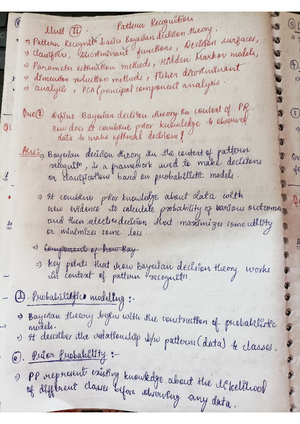 Unit II Pattern Recognition
→ Pattern Recognitn basics Bayesian decision theory,
→ Classifiers, Discriminant functions, Decision surfaces,
→ Parameter estimation methods, Hidden Markov models,
→ dimension reduction methods, Fisher discriminant
→ analysis, PCA (principal component analysis
Que① Define Bayesian decision theory in context of PR
how does it combine prior knowledge & observed
data to make optimal decisions?
Ans:→ Bayesian decision theory in the context of pattern
recognitn, is a framework used to make decisions
or classifications based on probabilistic models.
→ It combines prior knowledge about data with
new evidence to calculate probability of various outcomes
and then selects decision that maximizes some utility
or minimizes some loss.
→ Components of how Bay
→ Key points that show Bayesian decision theory works
in context of pattern recognitn.
① Probabilistic modelling:-
→ Bayesian theory begin with the construction of probabilistic
models.
→ It describes the relationship b/w patterns (data) & classes.
② Prior Probability:-
→ PP represent existing knowledge about the likelihood
of different classes before observing any data.